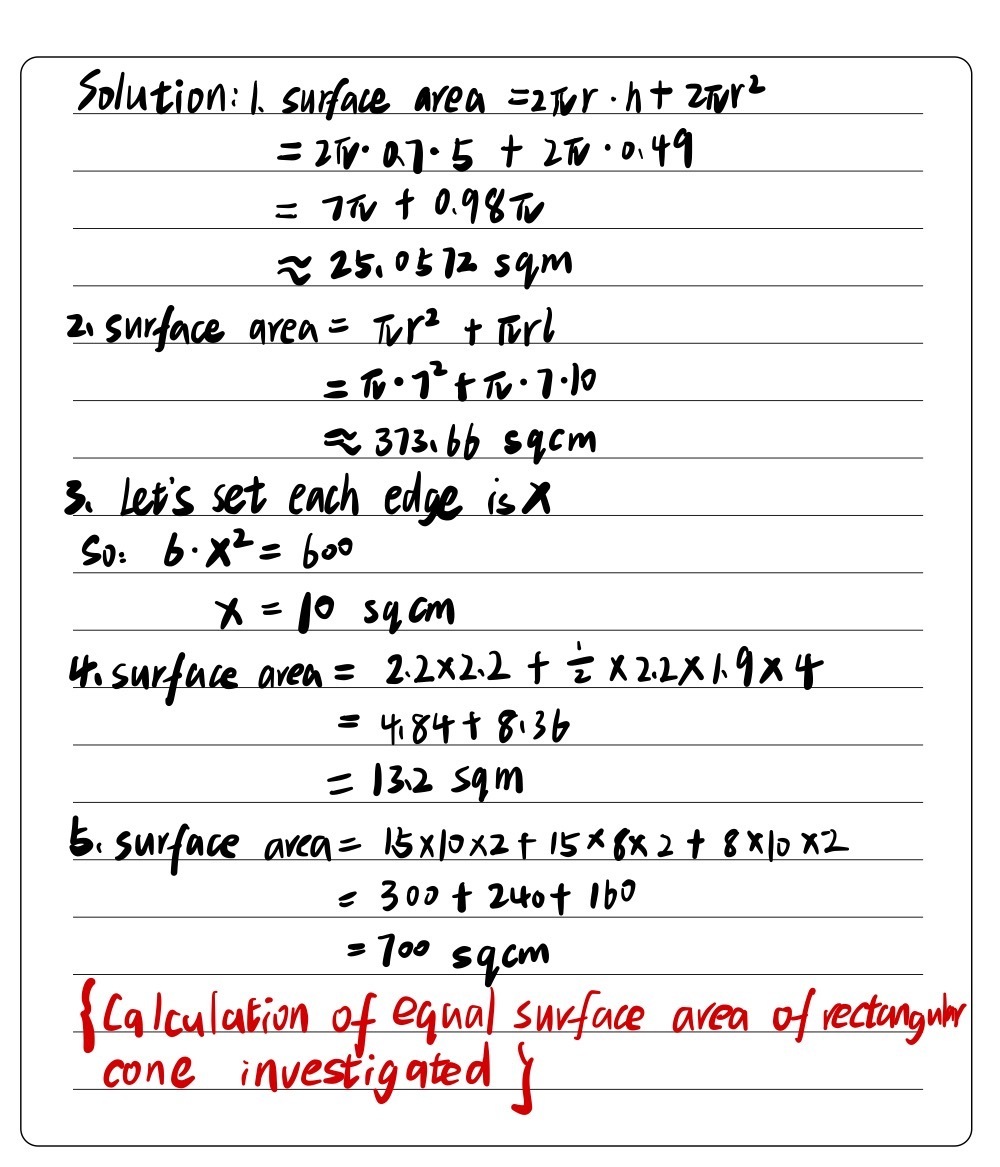 Solution: 1. surface area = 2πr · h + 2πr²
= 2π · 0.7 · 5 + 2π · 0.49
= 7π + 0.98π
≈ 25.0572 sqm
2. surface area = πr² + πrl
= π · 7² + π · 7 · 10
≈ 373.66 sqcm
3. Let's set each edge is x
So: 6 · x² = 600
x = 10 sqcm
4. surface area = 2.2×2.2 + ½ × 2.2 × 1.9 × 4
= 4.84 + 8.36
= 13.2 sqm
5. surface area = 15×10×2 + 15×8×2 + 8×10×2
= 300 + 240 + 160
= 700 sqcm
{Calculation of equal surface area of rectangular
cone investigated}